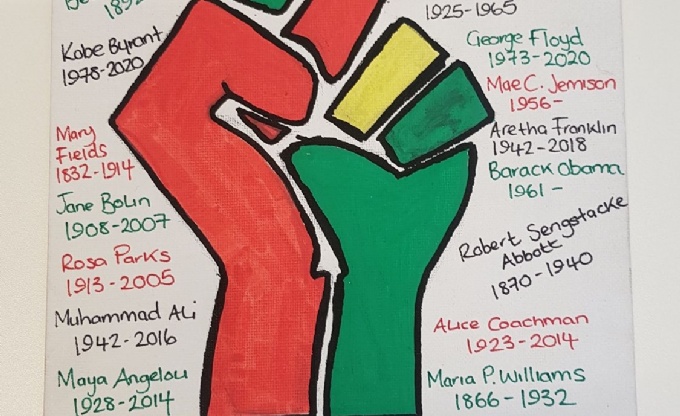 1925-1965
Kobe Byront
1978-2020
Mary
Fields
1832-1914
Jane Bolin
1908-2007
Rosa Parks
1913-2005
Muhammad Ali
1942-2016
Maya Angelou
1928-2014
George Floyd
1973-2020
Mae C. Jemison
1956-
Aretha Franklin
1942-2018
Barack Obama
1961-
Robert Sengstacke
Abbott
1870-1940
Alice Coachman
1923-2014
Maria P. Williams
1866-1932